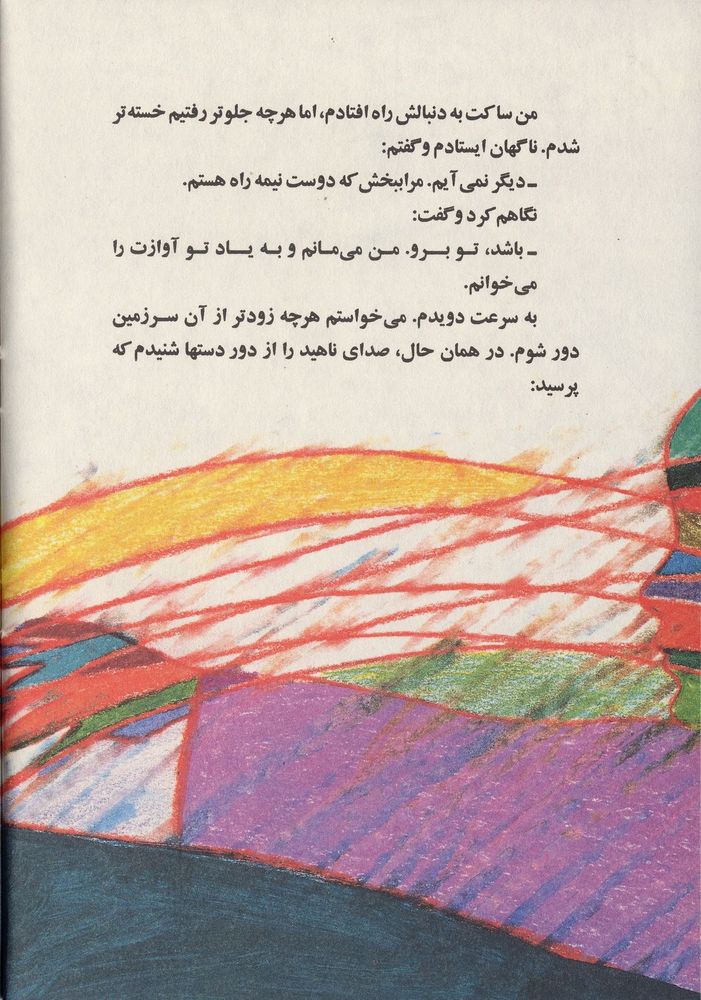 من ساکت به دنبالش راه افتادم، اما هرچه جلوتر رفتیم خسته‌تر
شدم. ناگهان ایستادم و گفتم:
ـ دیگر نمی‌آیم. مرا ببخش که دوست نیمه راه هستم.
نگاهم کرد و گفت:
ـ باشد، تو برو. من می‌مانم و به یاد تو آوازت را
می‌خوانم.
به سرعت دویدم. می‌خواستم هرچه زودتر از آن سرزمین
دور شوم. در همان حال، صدای ناهید را از دور دستها شنیدم که
پرسید: